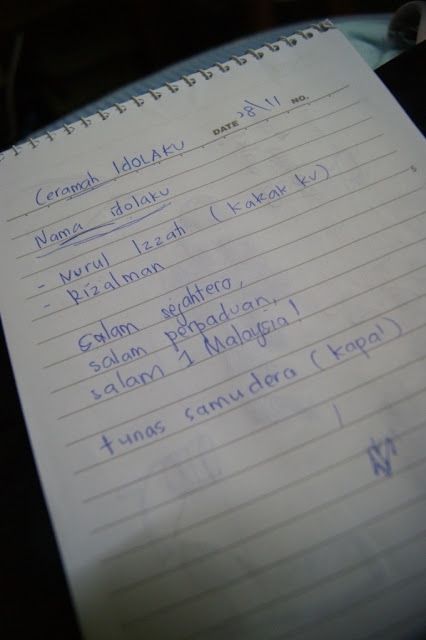 DATE 28\11 NO.
Ceramah IDOLAKU
Nama idolaku
- Nurul Izzah (kakak ku)
- Rizalman
Salam sejahtera,
salam perpaduan,
salam 1 Malaysia!
tunas samudera (kapal)